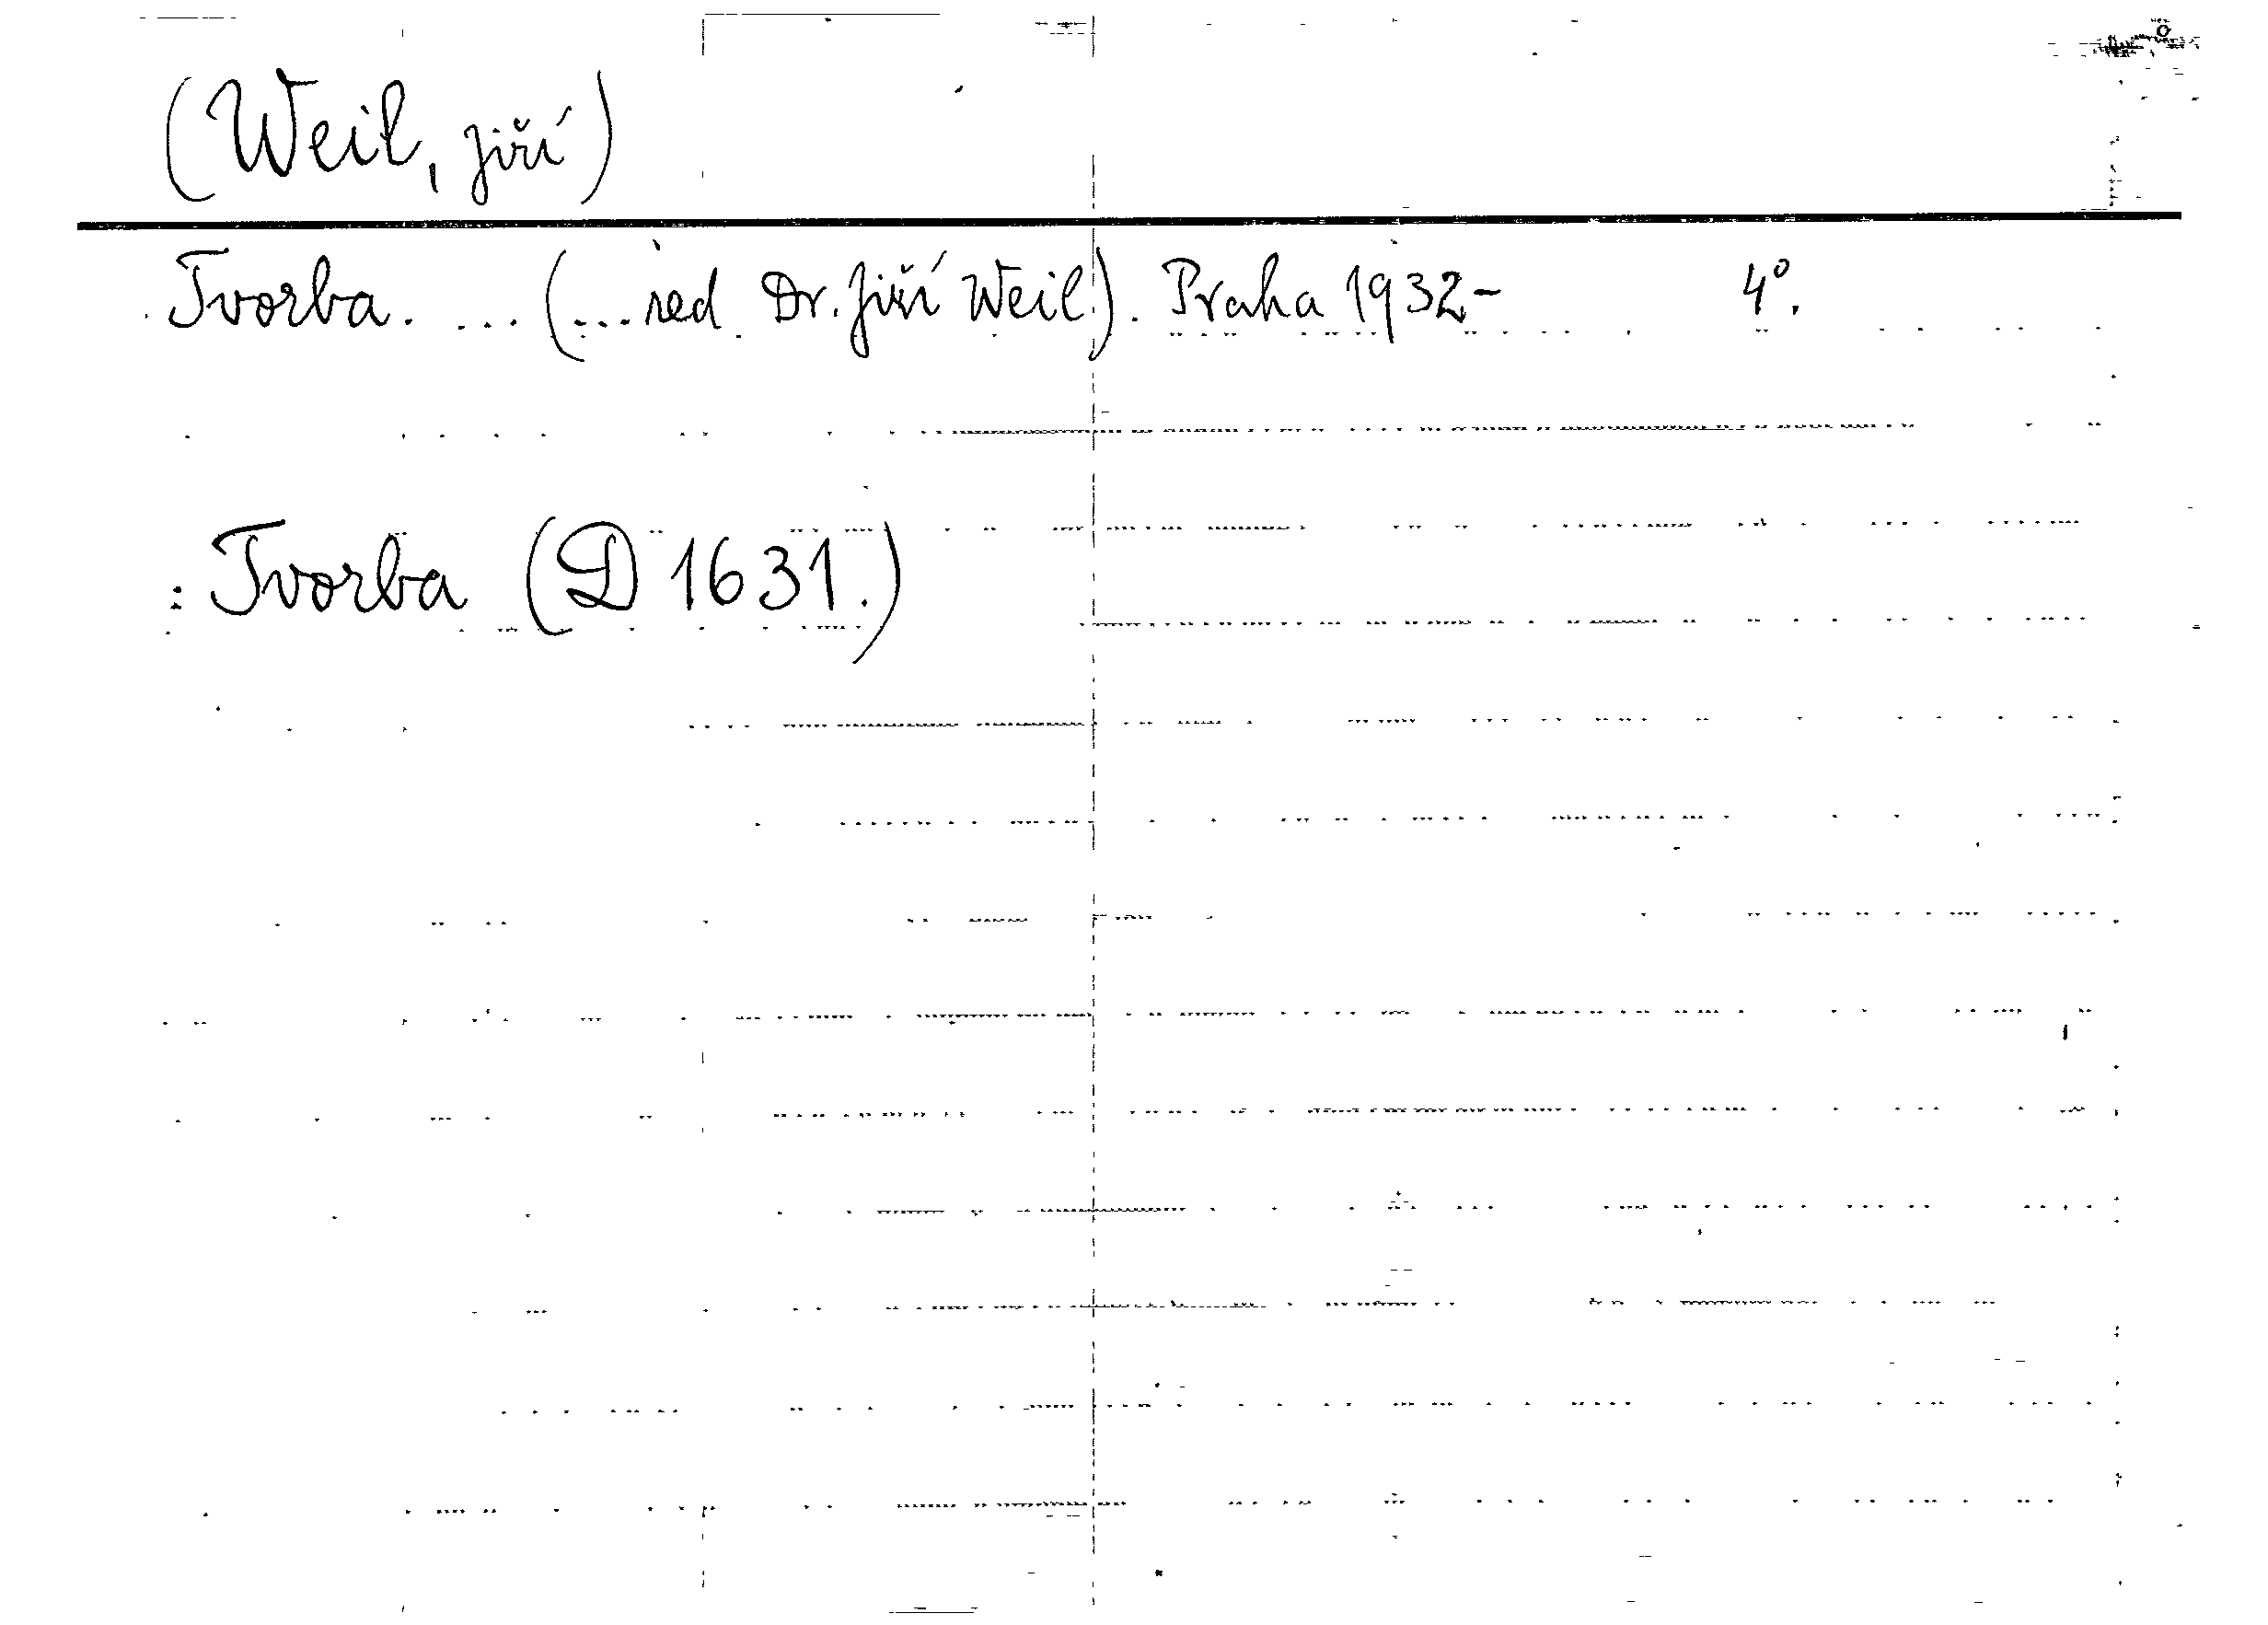 (Weil, Jiří)
Tvorba. ... (... red. Dr. Jiří Weil). Praha 1932- 4°.
: Tvorba (D 1631.)